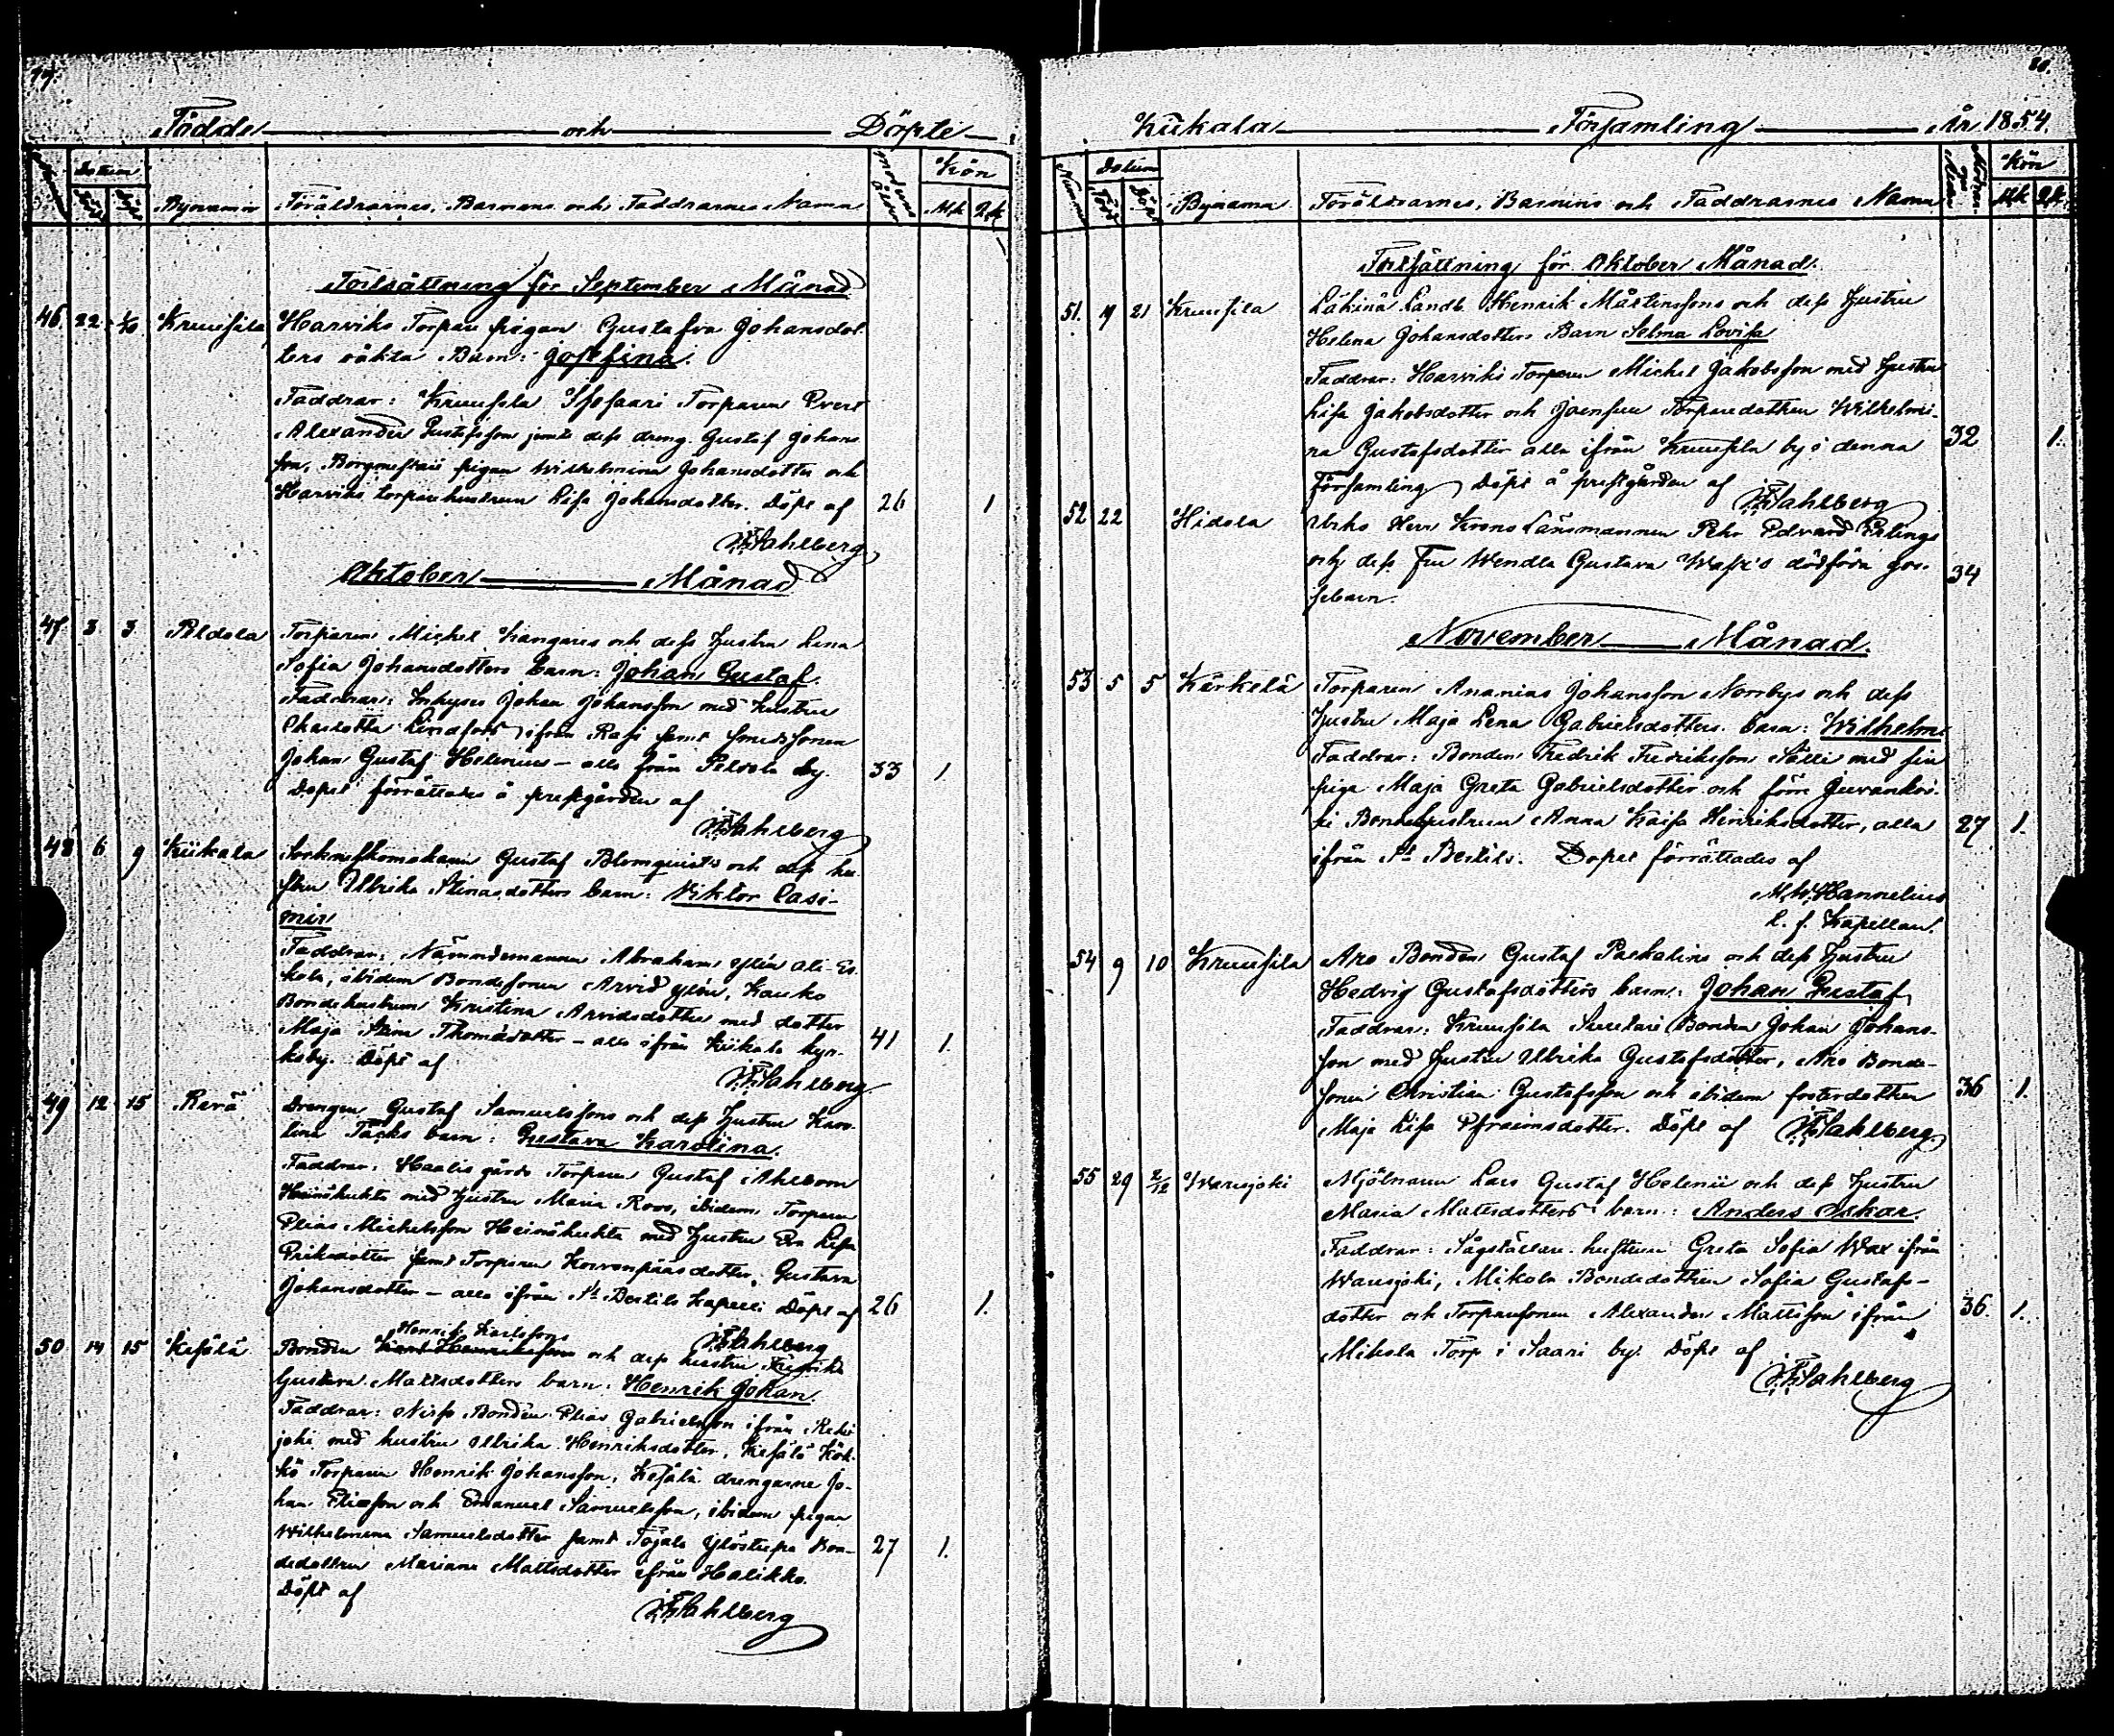 Födde och Döpte
Datum Kön
Född Döpt Bynamn Föräldrarnes, Barnens och Faddrarnes Namn Modrens Ålder Mk Qk
Fortsättning för September Månad
46. 22 1/10 Kruusila Harviks Torpare pigan Gustafva Johansdot-
ters oäkta Barn: Josefina.
Faddrar: Kruusila Isosaari Torparen Evert
Alexander Gustafsson jemte dess dreng Gustaf Johans
son, pigan Wilhelmina Johansdotter och
Harviks torparehustrun Lisa Johansdotter. Döpt af 26 1
Wahlberg
Oktober Månad
47 3 3 Peldola Torparen Michel Kangares och dess Hustru Lena
Sofia Johansdotters barn: Johan Gustaf.
Faddrar: Inhyses Johan Johansson med hustru
Charlotta Lindfors ifrån Rasi samt smedssonen
Johan Gustaf Helenius – alla från Peldola by. 33 1.
Dopet förrättades å prestgården af
Wahlberg
48 6 9 Kiikala Sockneskomakarn Gustaf Blomquists och dess hu-
stru Ulrika Stinasdotters barn: Viktor Casi-
mir
Faddrar: Nämndemannen Abraham Ylén
ibidem Bondesonen Arvid Ylén, Kauko
Bondehustrun Kristina Arvidsdotter med dotter
Maja Stina Thomasdotter – alla ifrån Kiikala kyr- 41 1
koby. Döpt af
Wahlberg
49 12 15 Rerä Drengen Gustaf Samuelssons och dess Hustru Karo-
lina Täcks barn: Gustava Karolina.
Faddrar: Haalis gårds Torparen Gustaf Ahlbom
Heinäkukta med Hustru Maria Roos, ibidem Torparen
Elias Michelsson Heinäkukta med Hustru Eva Lisa
Eriksdotter samt Torparen dotter, Gustava
Johansdotter – alla ifrån St Bertils kapell. Döpt af 26 1.
Wahlberg
50 14 15 Kesälä Bonden Henrik Karlssons och dess hustru Fredrika
Gustava Mattsdotters barn: Henrik Johan.
Faddrar: Bonden Elias Gabrielsson ifrån Reki-
joki med hustru Ulrika Henriksdotter, Kesälä Kök-
kö Torparen Henrik Johansson, Kesälä drengarne Jo-
han Eliasson och Emanuel Samuelsson, ibidem pigan
Wilhelmina Samuelsdotter samt Bon- 27 1.
dedottren Mariana Mattsdotter ifrån Halikko.
Döpt af
Wahlberg
Kiikala Församling År 1854.
Datum Kön
Nummer Född Döpt Bynamn Föräldrarnes, Barnens och Faddrarnes Namn Mk Qk
Fortsättning för Oktober Månad.
51. 21 Kruusila Henrik Mårtenssons och dess Hustru
Helena Johansdotters Barn Selma Lovisa
Faddrar: Harviks Torparen Michel Jakobsson med Hustru
Lisa Jakobsdotter och Joensuu Torparedottren Wilhelmi-
na Gustafsdotter alla ifrån Kruusila by i denna 32 1.
Församling Döpt å prestgården af
Wahlberg
52 22 Hidola Herr Krono Länsmannen Pehr Edvard
och dess Fru Wendla Gustava dödföda gos- 34
sebarn.
November Månad.
53 5 5 Kärkelä Torparen Ananias Johansson Norrbys och dess
Hustru Maja Lena Gabrielsdotters barn: Wilhelm.
Faddrar: Bonden Fredrik Fredriksson Sälli med sin
piga Maja Greta Gabrielsdotter och förre
Bondehustrun Anna Kaisa Henriksdotter, alla 27 1.
ifrån St Bertils. Dopet förrättades af
M. W. Hannelius
Kapellan.
54 9 10 Kruusila Aro Bonden Gustaf och dess Hustru
Hedvig Gustafsdotters barn: Johan Gustaf
Faddrar: Kruusila Bonden Johan Johans-
son med Hustru Ulrika Gustafsdotter, Aro Bonde-
sonen Christian Gustafsson och ibidem fosterdottren 36 1.
Maja Lisa Efraimsdotter. Döpt af Wahlberg
55 29 2/12 Warisjoki Mjölnaren Lars Gustaf Helenii och dess Hustru
Maria Mattsdotters barn: Anders Oskar.
Faddrar: hustrun Greta Sofia Wax ifrån
Mikola Bondedottren Sofia Gustafs-
dotter och Torparesonen Alexander Mattsson ifrån 36. 1.
Mikola Torp i Saari by. Döpt af
Wahlberg